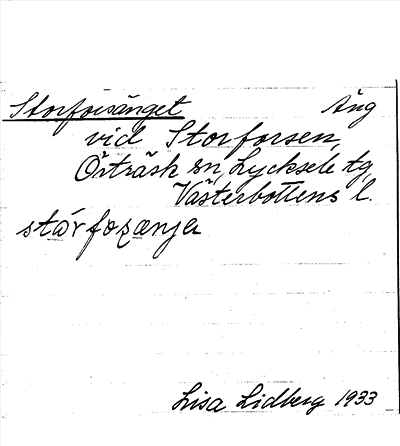 Storforsänget Äng
vid Storforsen,
Örträsk sn, Lycksele tg,
Västerbottens l.
Lisa Lidberg 1933